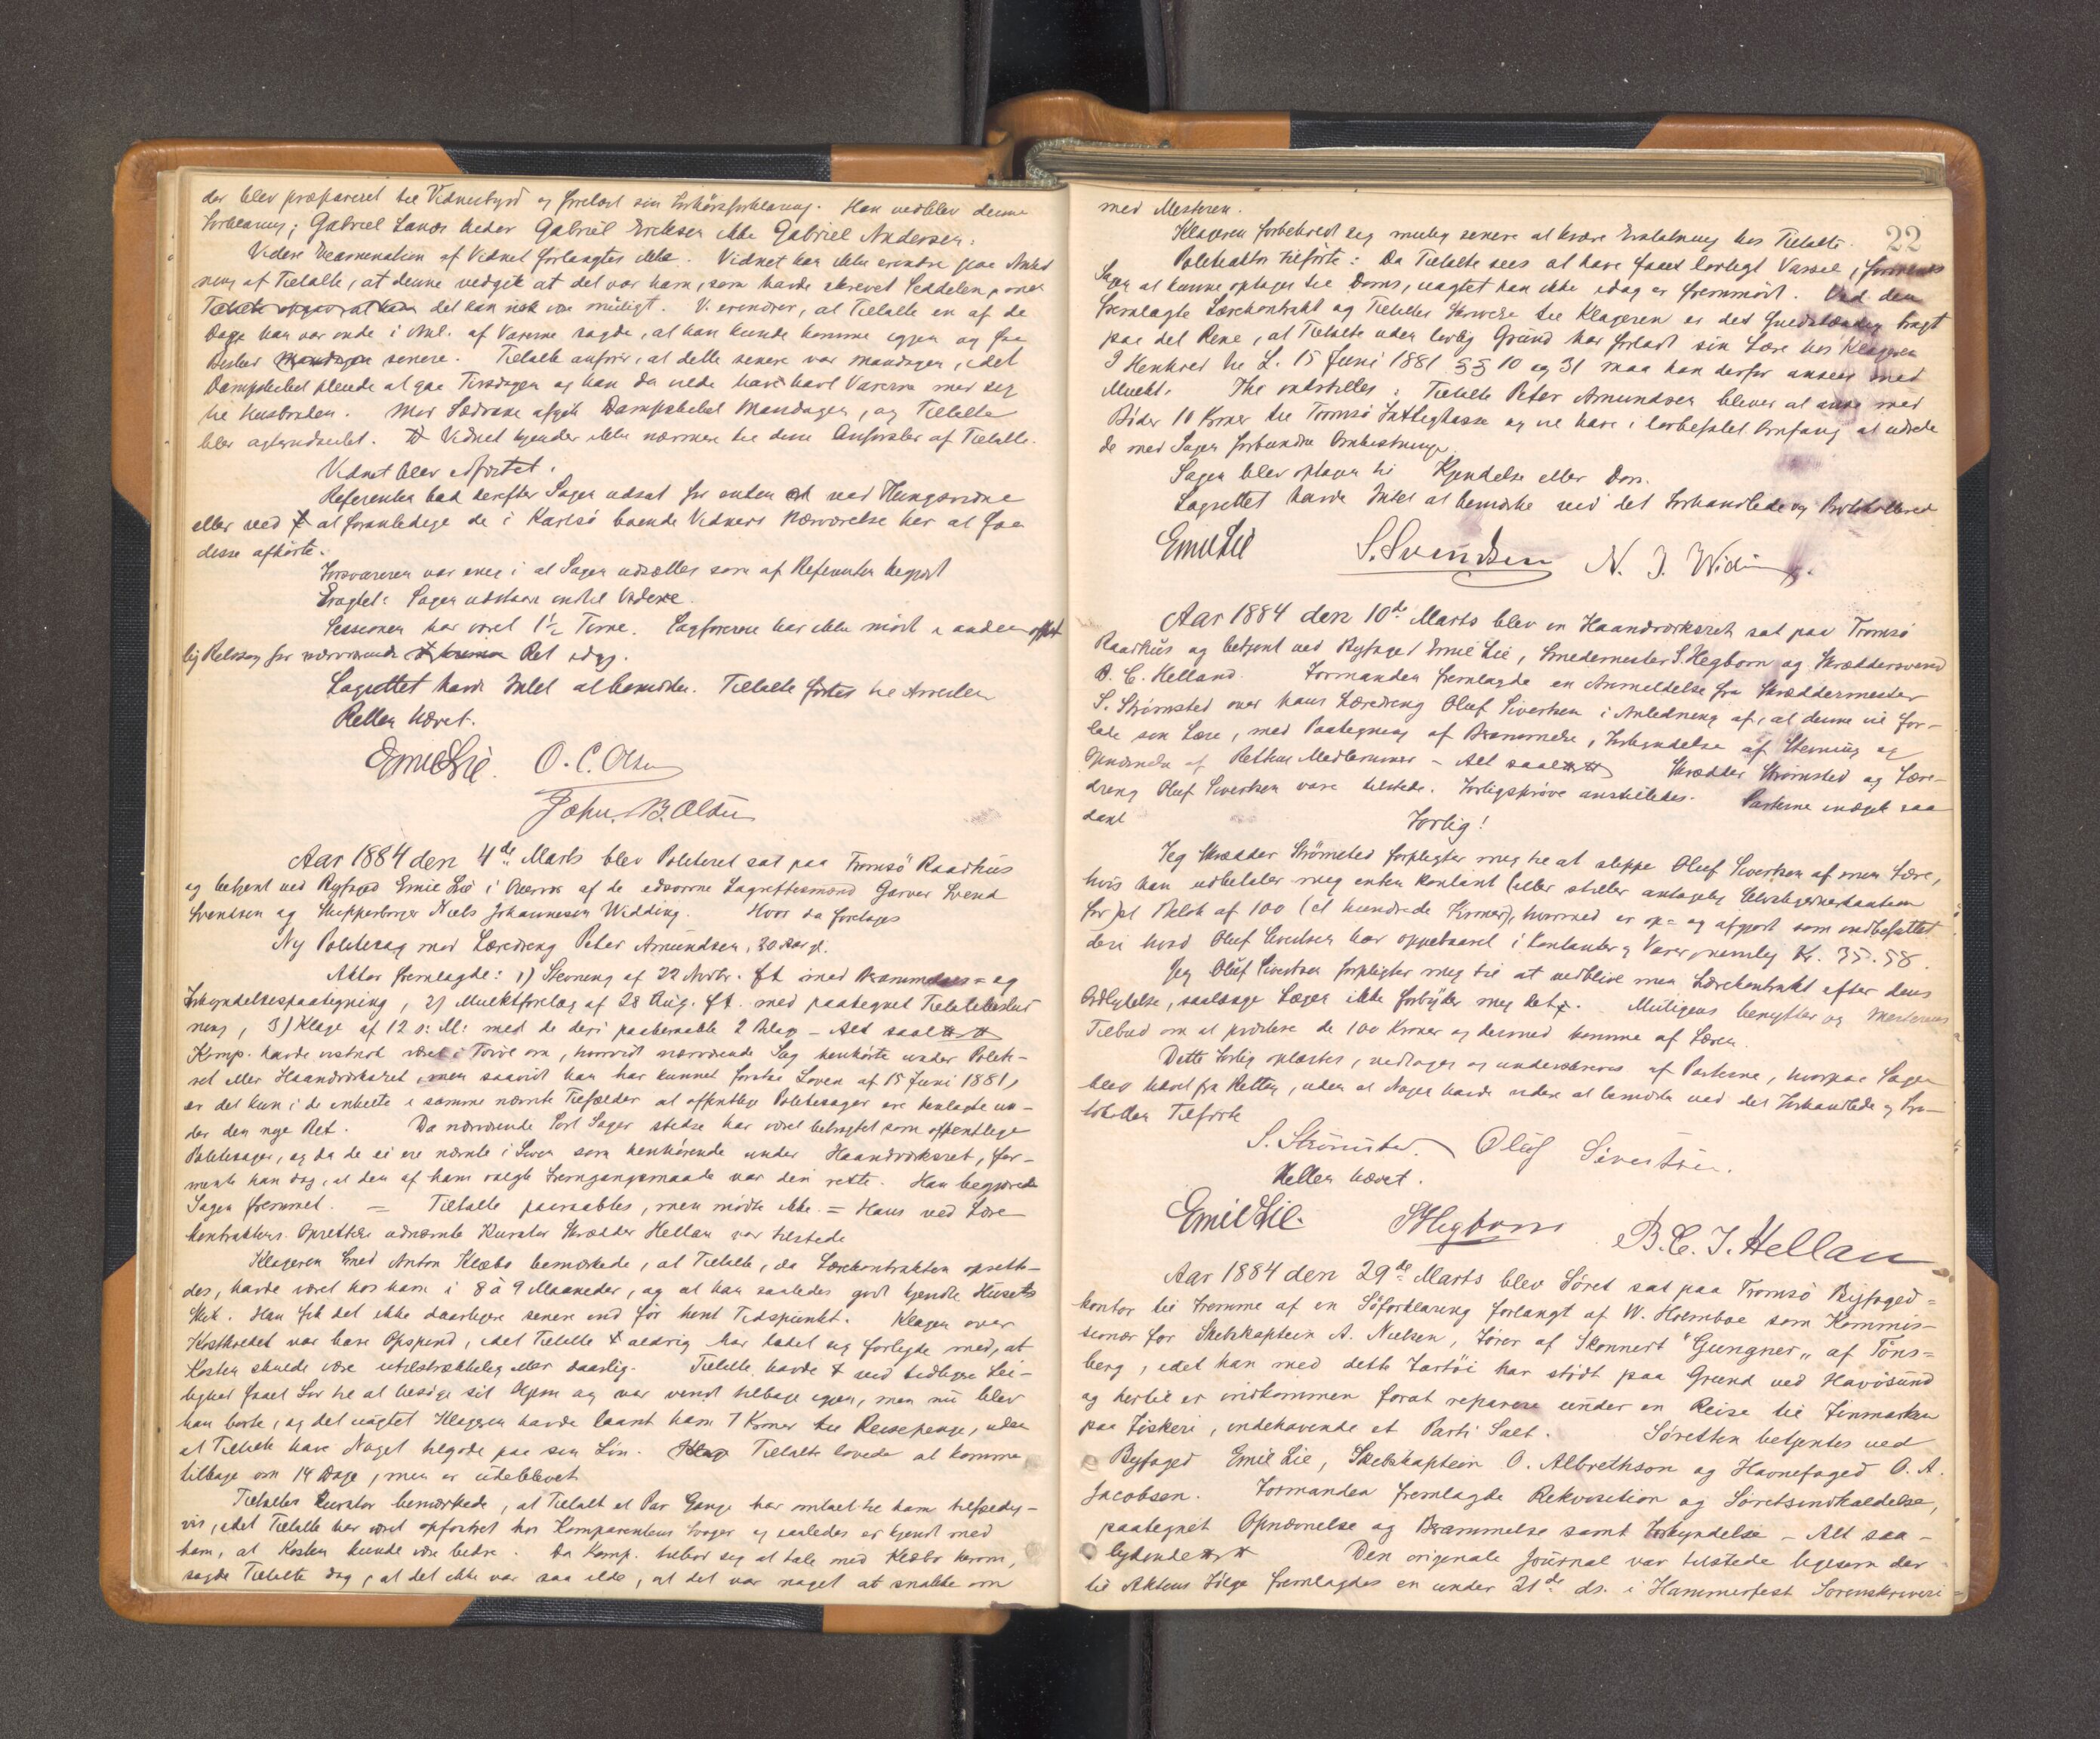 der blev præpareret til Vidnesbyrd og forelæst sin Forhørsforklaring. Han vedblev denne
Forklaring; Gabriel Lanes heder Gabriel Eriksen ikke Gabriel Andersen.
Videre Examination af Vidnet forlangtes ikke. Vidnet kan ikke erindre paa Anled
ning af Tiltalte, at denne vedgik at det var ham, som havde skrevet Seddelen, men
det kan nok være muligt. V. erindrer, at Tiltalte en af de
Dage han var inde i Anl. af Varerne sagde, at han kunde komme igjen og faa
Besked senere. Tiltalte anfører, at dette senere var Mandagen, idet
Dampskibet pleiede at gaa Tirsdagen og han da vilde have havt Varerne med sig
til Husbonden. Mod Sædvane afgik Dampskibet Mandagen, og Tiltalte
blev agterudseilet. Vidnet kjender ikke nærmere til denne Anførsler af Tiltalte.
Vidnet blev edfæstet.
Referenten bad derefter Sagen udsat for enten at ved Thingsvidne
eller ved at foranledige de i Karlsö boende Vidners Nærværelse her at faa
disse afhörte.
Forsvareren var enig i at Sagen udsættes som af Referenten begjært
Eragtet: Sagen udstaar indtil Videre.
Sessionen har varet 1½ Time. Sagförerne har ikke mödt i anden offent
lig Retssag for nærværende Ret idag.
Lagrettet havde Intet at bemærke. Tiltalte førtes til Arresten
Retten hævet.
Emil Lie. O. C. Olsen
John. B. Olsen
Aar 1884 den 4de Marts blev Politiret sat paa Tromsö Raadhus
og betjent ved Byfoged Emil Lie i Overvær af de edsvorne Lagrettesmænd Garver Svend
Svendsen og Skipperborger Niels Johannesen Widding. Hvor da foretoges
Ny Politisag mod Læredreng Peter Amundsen, 20 Aar gl.
Aktor fremlagde: 1) Stevning af 22 Novbr. f.A. med Berammelses- og
Forkyndelsespaategning, 2) Mulktforelæg af 28 Aug. f.A. med paategnet Tiltalebeslut
ning, 3) Klage af 12 s. M: med de deri paaberaabte 2 Bilag – Alt saal.
Komp. havde vistnok været i Tvivl om, hvorvidt nærværende Sag henhörte under Politi-
ret eller Haandværksret, men saavidt han har kunnet forstaa Loven af 15 Juni 1881,
er det kun i de enkelte i samme nævnte Tilfælder at offentlige Politisager ere henlagte un-
der den nye Ret. Da nærværende Sort Sager stedse har været betragtet som offentlige
Politisager, og da de ei ere nævnte i Loven som henhørende under Haandværksret, for-
mente han dog, at den af ham valgte Fremgangsmaade var den rette. Han begjærede
Sagen fremmet. = Tiltalte paaraabtes, men mödte ikke. = Hans ved Lære
kontraktens Oprettelse udnævnte Kurator Skrædder Hellan var tilstede
Klageren Smed Anton Klæbo bemærkede, at Tiltalte, da Lærekontrakten oprette-
des, havde været hos ham i 8 à 9 Maaneder, og at han saaledes godt kjendte Husets
Skik. Han fik det ikke daarligere senere end før hint Tidspunkt. Klagen over
Kostholdet var bare Opspind, idet Tiltalte aldrig har ladet sig forlyde med, at
Kosten skulde være utilstrækkelig eller daarlig. Tiltalte havde ved tidligere Lei-
lighed faaet Lov til at besöge sit Hjem og var vendt tilbage igjen, men nu blev
han borte, og det uagtet Klageren havde laant ham 7 Kroner til Reisepenge, uden
at Tiltalte have Noget tilgode paa sin Lön. Tiltalte lovede at komme
tilbage om 14 Dage, men er udeblevet
Tiltaltes Kurator bemærkede, at Tiltalt et Par Gange har omtalt til ham tilfældig-
vis, idet Tiltalte har været opfostret hos Komparentens Svoger og saaledes er kjendt med
ham, at Kosten kunde være bedre. Da Komp. tilböd sig at tale med Klæbo herom,
sagde Tiltalte dog, at det ikke var saa ilde, at det var noget at snakke om
22
med Mesteren.
Klageren forbeholdt sig mulig senere at kræve Erstatning hos Tiltalte.
Politiaktor tilförte: Da Tiltalte sees at have faaet lovligt Varsel, formenes
Sagen at kunne optages til Doms, uagtet han ikke idag er fremmødt. Ved den
fremlagte Lærekontrakt og Tiltaltes Skrivelse til Klageren er det fuldstændig bragt
paa det Rene, at Tiltalte uden lovlig Grund har forladt sin Lære hos Klageren
I Henhold til L. 15 Juni 1881 §§ 10 og 31 maa han derfor ansees med
Mulkt. Thi indstilles: Tiltalte Peter Amundsen bliver at anse med
Böder 10 Kroner til Tromsö Fattigkasse og vil have i lovbefalet Omfang at udrede
de med Sagen forbundne Omkostninger
Sagen blev optagen til Kjendelse eller Dom.
Lagrettet havde Intet at bemærke ved det Forhandlede og Protokollerede
Emil Lie S. Svendsen N. J. Widding.
Aar 1884 den 10de Marts blev en Haandværksret sat paa Tromsö
Raadhus og betjent ved Byfoged Emil Lie, Smedemester S. Hegbom og Skræddersvend
B. C. Helland. Formanden fremlagde en Anmeldelse fra Skræddermester
S. Strömsted over hans Læredreng Oluf Sivertsen i Anledning af, at denne vil for-
lade sin Lære, med Paategning af Berammelse, Forkyndelse af Stevning og
Opnævnelse af Rettens Medlemmer – Alt saal. Skrædder Strömsted og Lære-
dreng Oluf Sivertsen vare tilstede. Forligspröve anstilledes. Parterne indgik saa
dant Forlig!
Jeg Skrædder Strömsted forpligter mig til at slippe Oluf Sivertsen af min Lære,
hvis han udbetaler mig enten kontant (eller stiller antagelig Selvskyldnerkaution
for) et Belöb af 100 (et hundrede Kroner), hvormed er op- og afgjort som indbefattet
deri hvad Oluf Sivertsen har oppebaaret i Kontanter og Varer, nemlig Kr. 35.58.
Jeg Oluf Sivertsen forpligter mig til at vedblive min Lærekontrakt efter dens
Ordlydelse, saalænge Lægen ikke forbyder mig det. Muligens benytter jeg Mesterens
Tilbud om at præstere de 100 Kroner og dermed komme af Læren.
Dette Forlig oplæstes, vedtoges og underskreves af Parterne, hvorpaa Sagen
blev hævet fra Retten, uden at Nogen havde videre at bemærke ved det Forhandlede og Pro-
tokollen Tilförte
S. Strömsted. Oluf Sivertsen.
Retten hævet.
Emil Lie. S Hegbom B. C. J. Hellan
Aar 1884 den 29de Marts blev Söret sat paa Tromsö Byfoged-
kontor til Fremme af en Söforklaring forlangt af W. Holmboe som Kommis-
sionær for Skibskaptein A. Nielsen, Förer af Skonnert "Gungner" af Töns-
berg, idet han med dette Fartöi har stödt paa Grund ved Havösund
og hertil er indkommen forat reparere under en Reise til Finmarken
paa Fiskeri, indehavende et Parti Salt. Söretten betjentes ved
Byfoged Emil Lie, Skibskaptein O. Albrethson og Havnefoged O. A.
Jacobsen. Formanden fremlagde Rekvisition og Söretsindkaldelse,
paategnet Opnævnelse og Berammelse samt Forkyndelse – Alt saa-
lydende Den originale Journal var tilstede ligesom der
til Aktens Fölge fremlagdes en under 21de ds. i Hammerfest Sorenskriveri